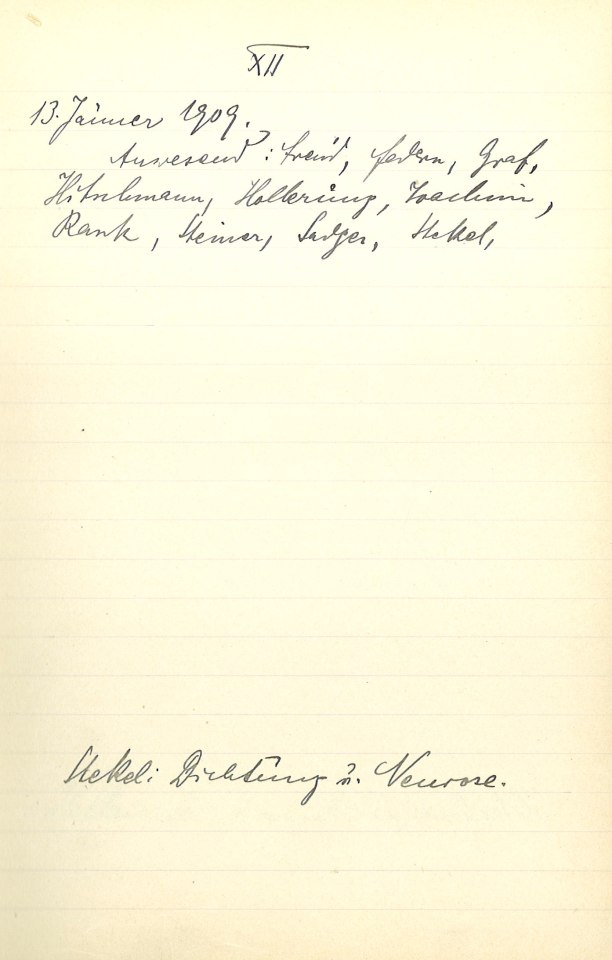 XII
13. Jänner 1909.
Anwesend: Freud, Federn, Graf,
Hitschmann, Hollerung, Joachim,
Rank, Steiner, Sadger, Stekel,
Stekel: Dichtung u. Neurose.